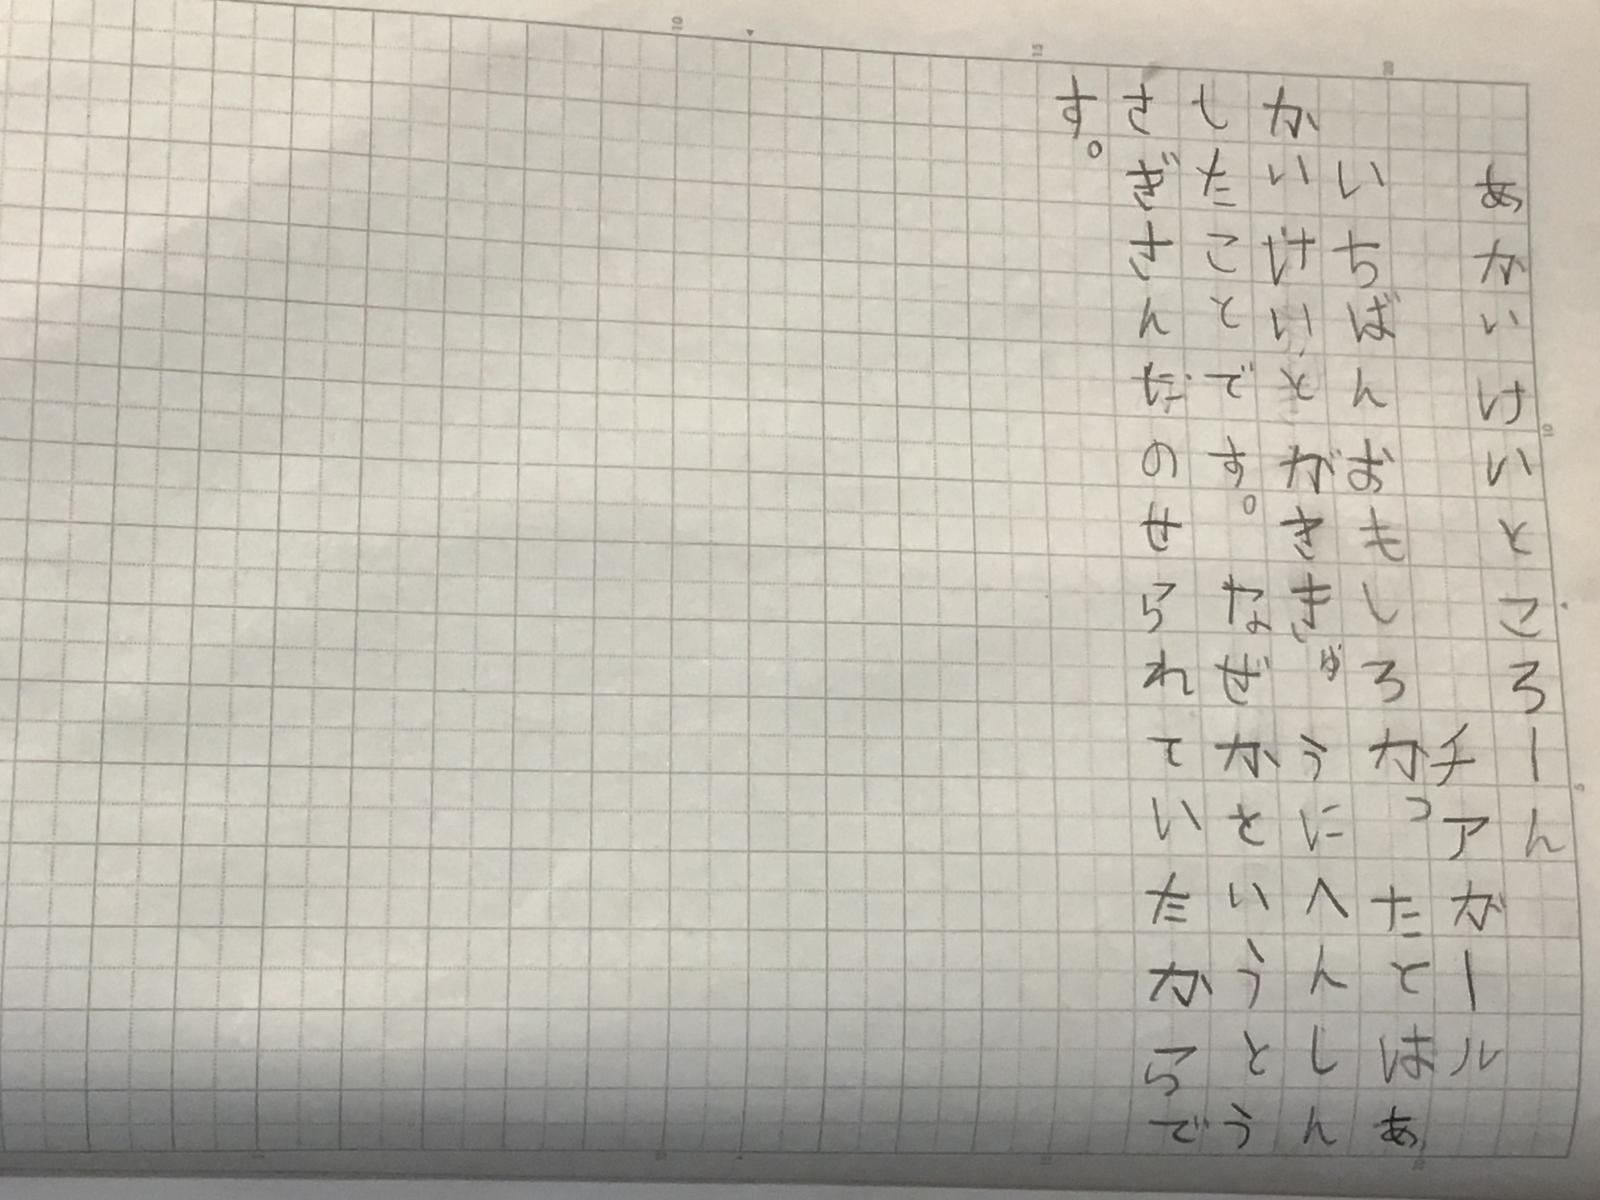 あかいけいところーん
チアガール
いちばんおもしろかったとはあ
かいけいとがきぎゅうにへんしん
したことです。なぜかというとう
さぎさんだのせられていたからで
す。